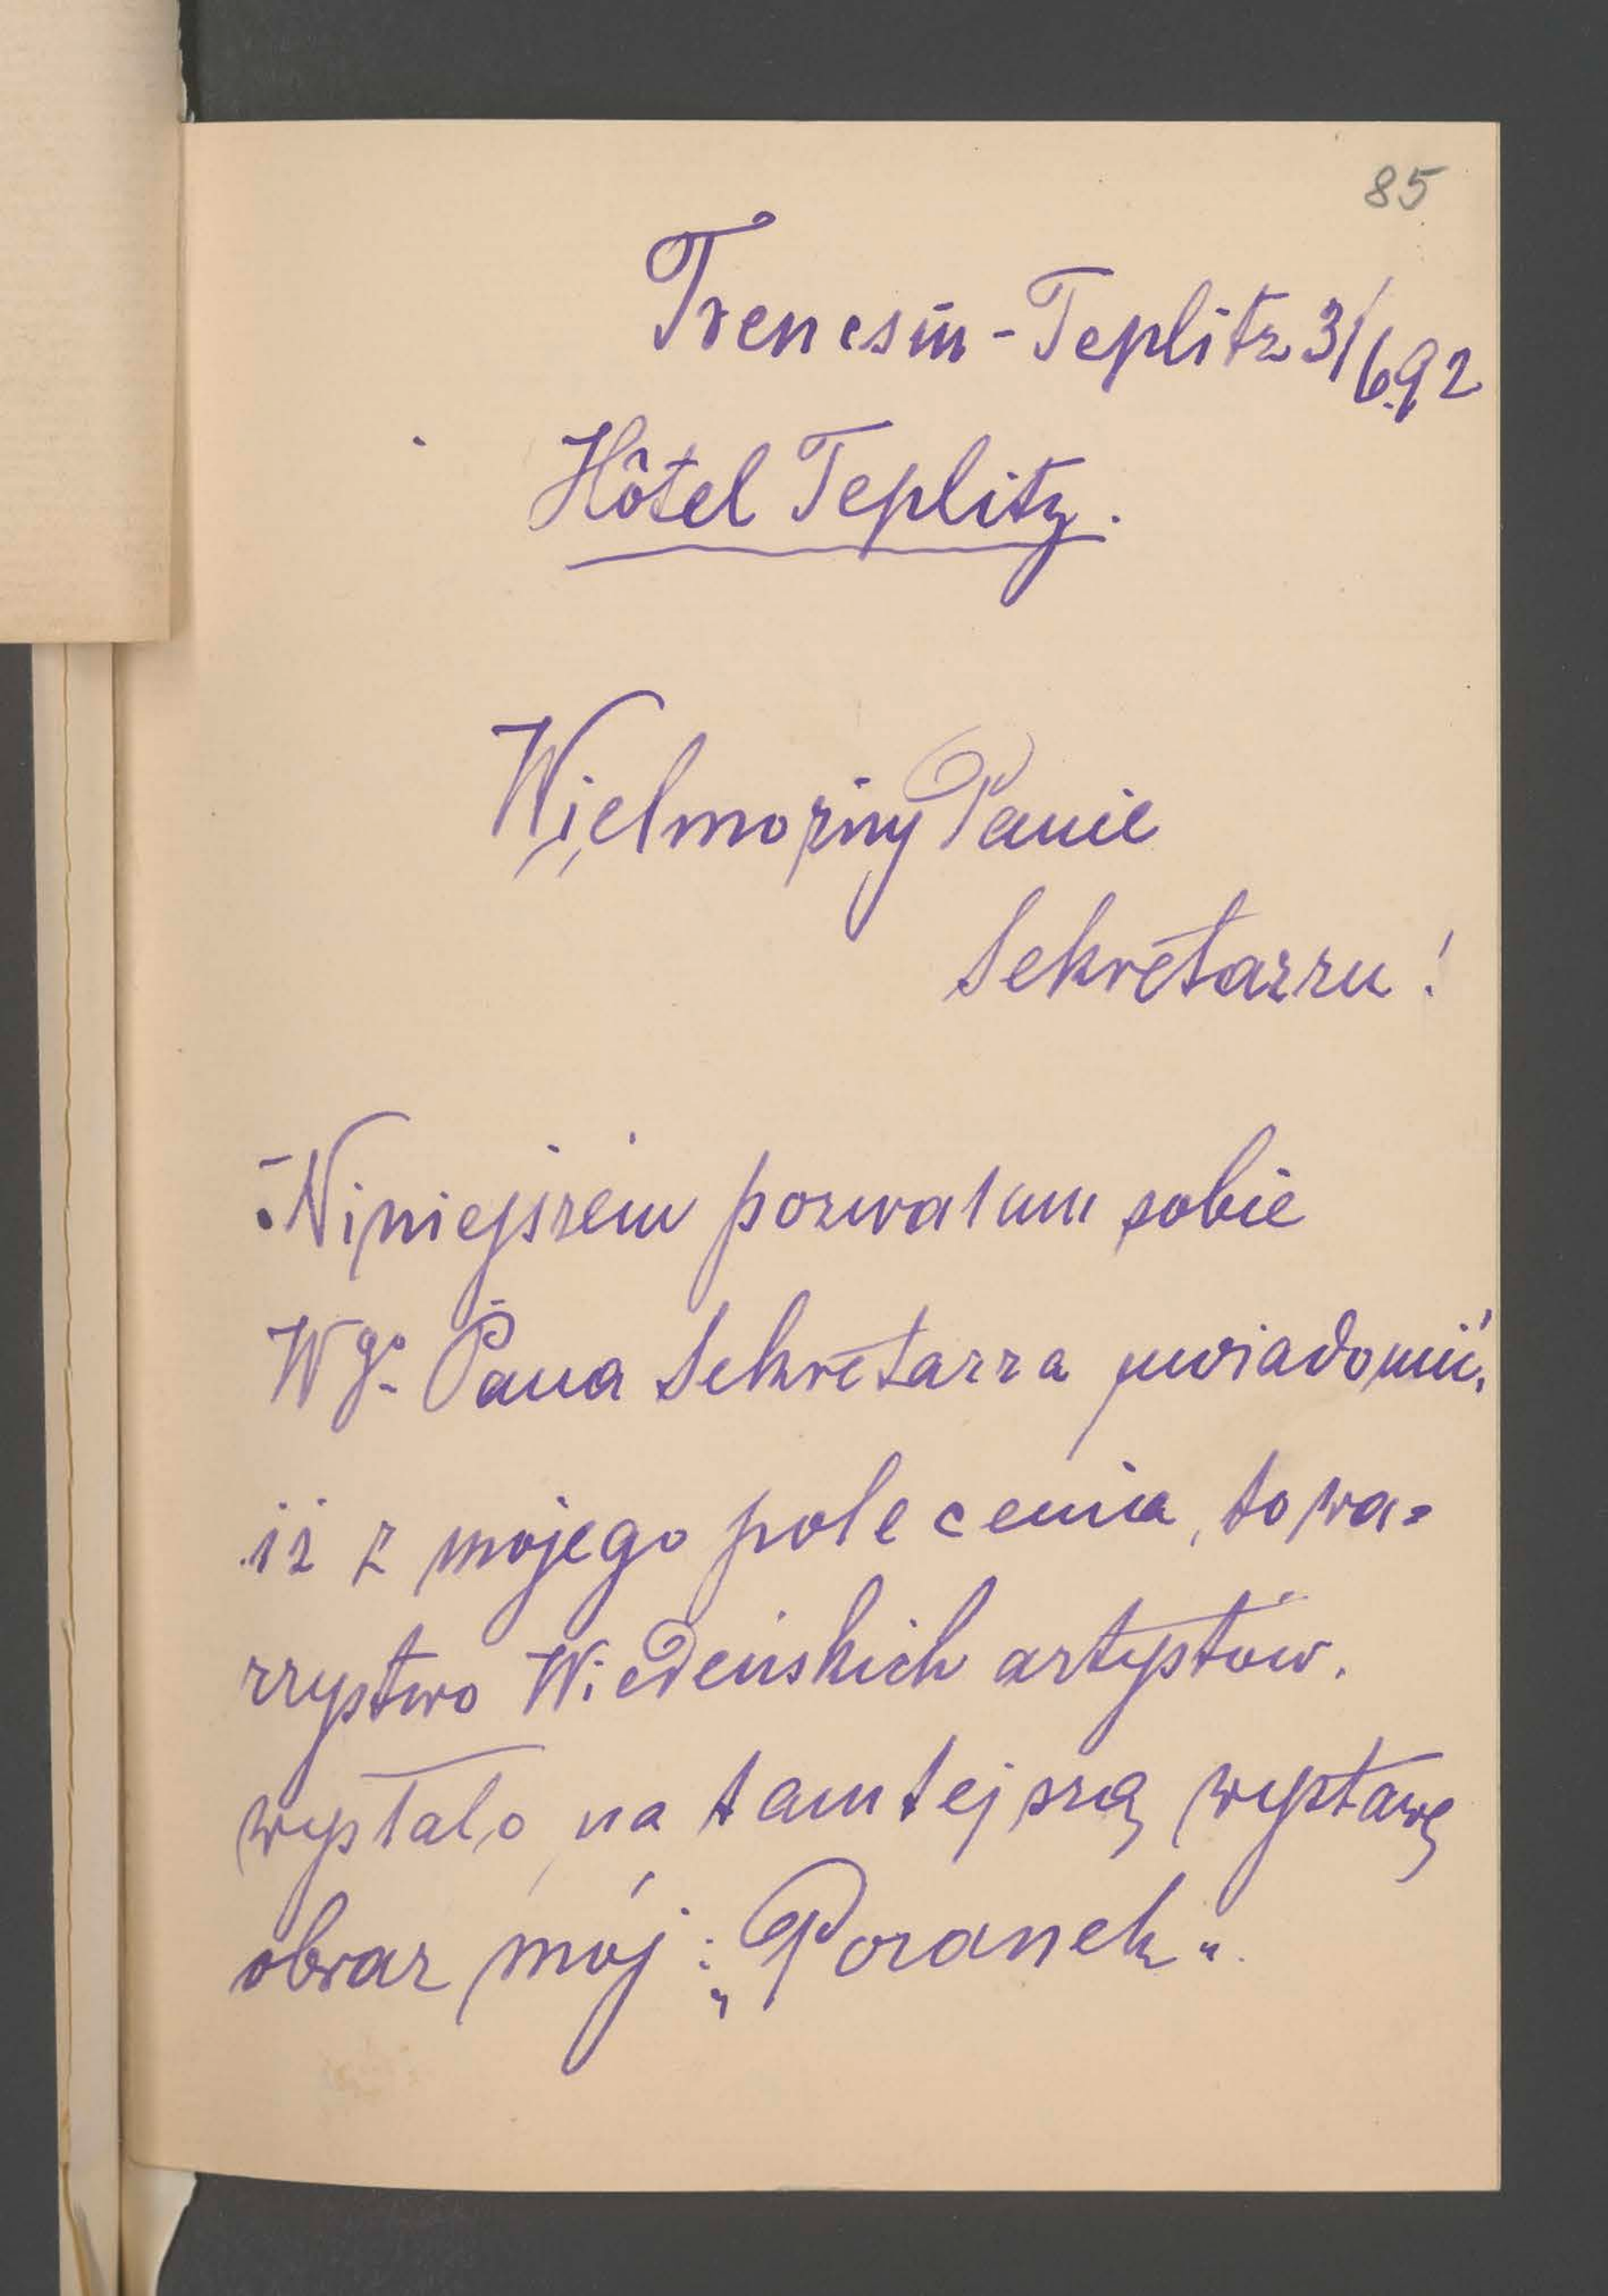 85
Trencsin-Teplitz 3/6.92
Hôtel Teplitz.
Wielmożny Panie
Sekretarzu!
Niniejszem pozwalam sobie
Wgo. Pana Sekretarza uwiadomić,
iż z mojego polecenia, towa=
rzystwo Wiedeńskich artystów.
wysłało na tamtejszą wystawę
obraz mój: „Poranek“.